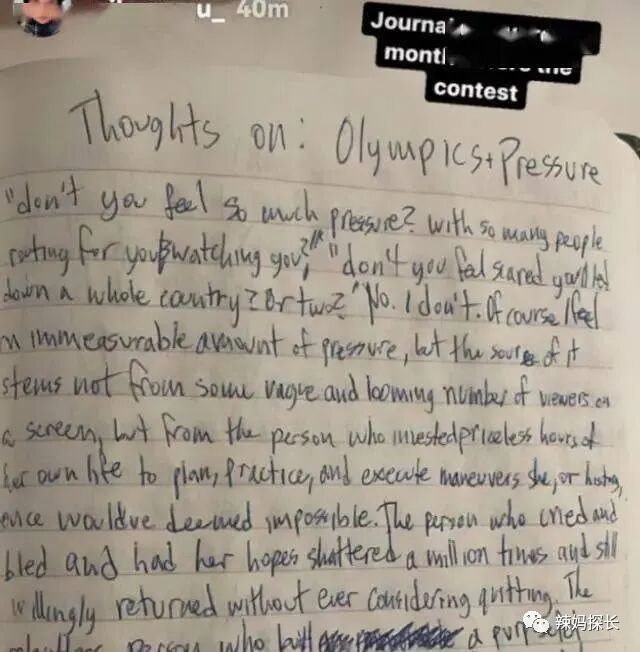 u_ 40m
Journa
mont the
contest
Thoughts on: Olympics + Pressure
"don't you feel so much pressure? With so many people
rooting for you & watching you?", "don't you feel scared you'll let
down a whole country? Or two?" No. I don't. Of course I feel
an immeasurable amount of pressure, but the source of it
stems not from some vague and looming number of viewers on
a screen, but from the person who invested priceless hours of
her own life to plan, practice, and execute maneuvers she, or history,
ence would've deemed impossible. The person who cried and
bled and had her hopes shattered a million times and still
willingly returned without ever considering quitting. The
person who built a purpose
辣妈探长